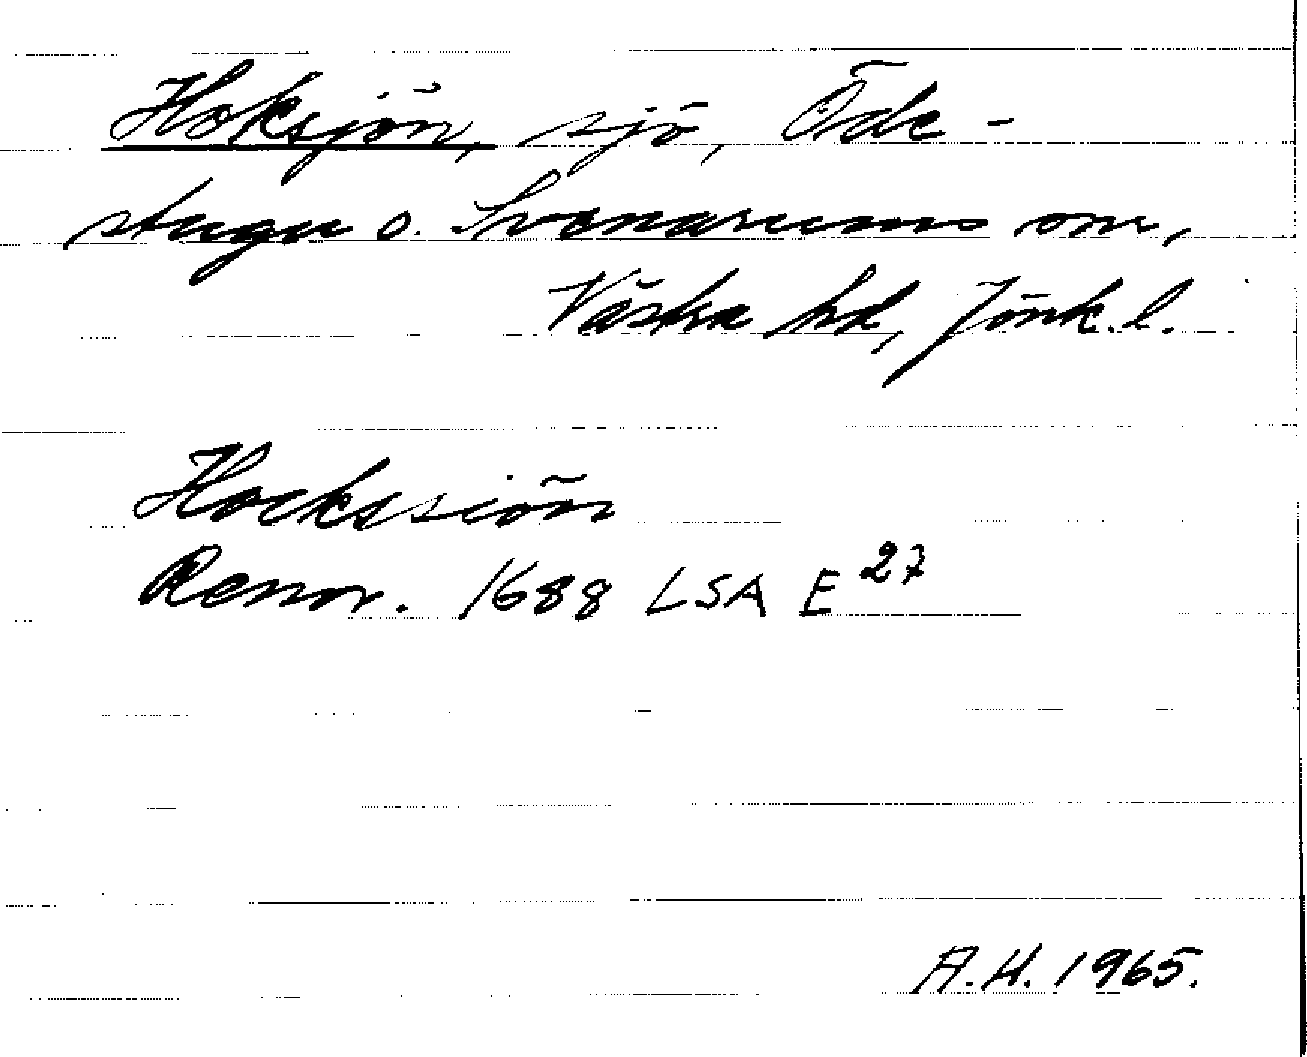 Hoksjön, sjö, Öde-
stugu o. Svenarums snr,
Västra hd, Jönk. l.
Hockssiön
Renov. 1688 LSA E 27
A.H. 1965.